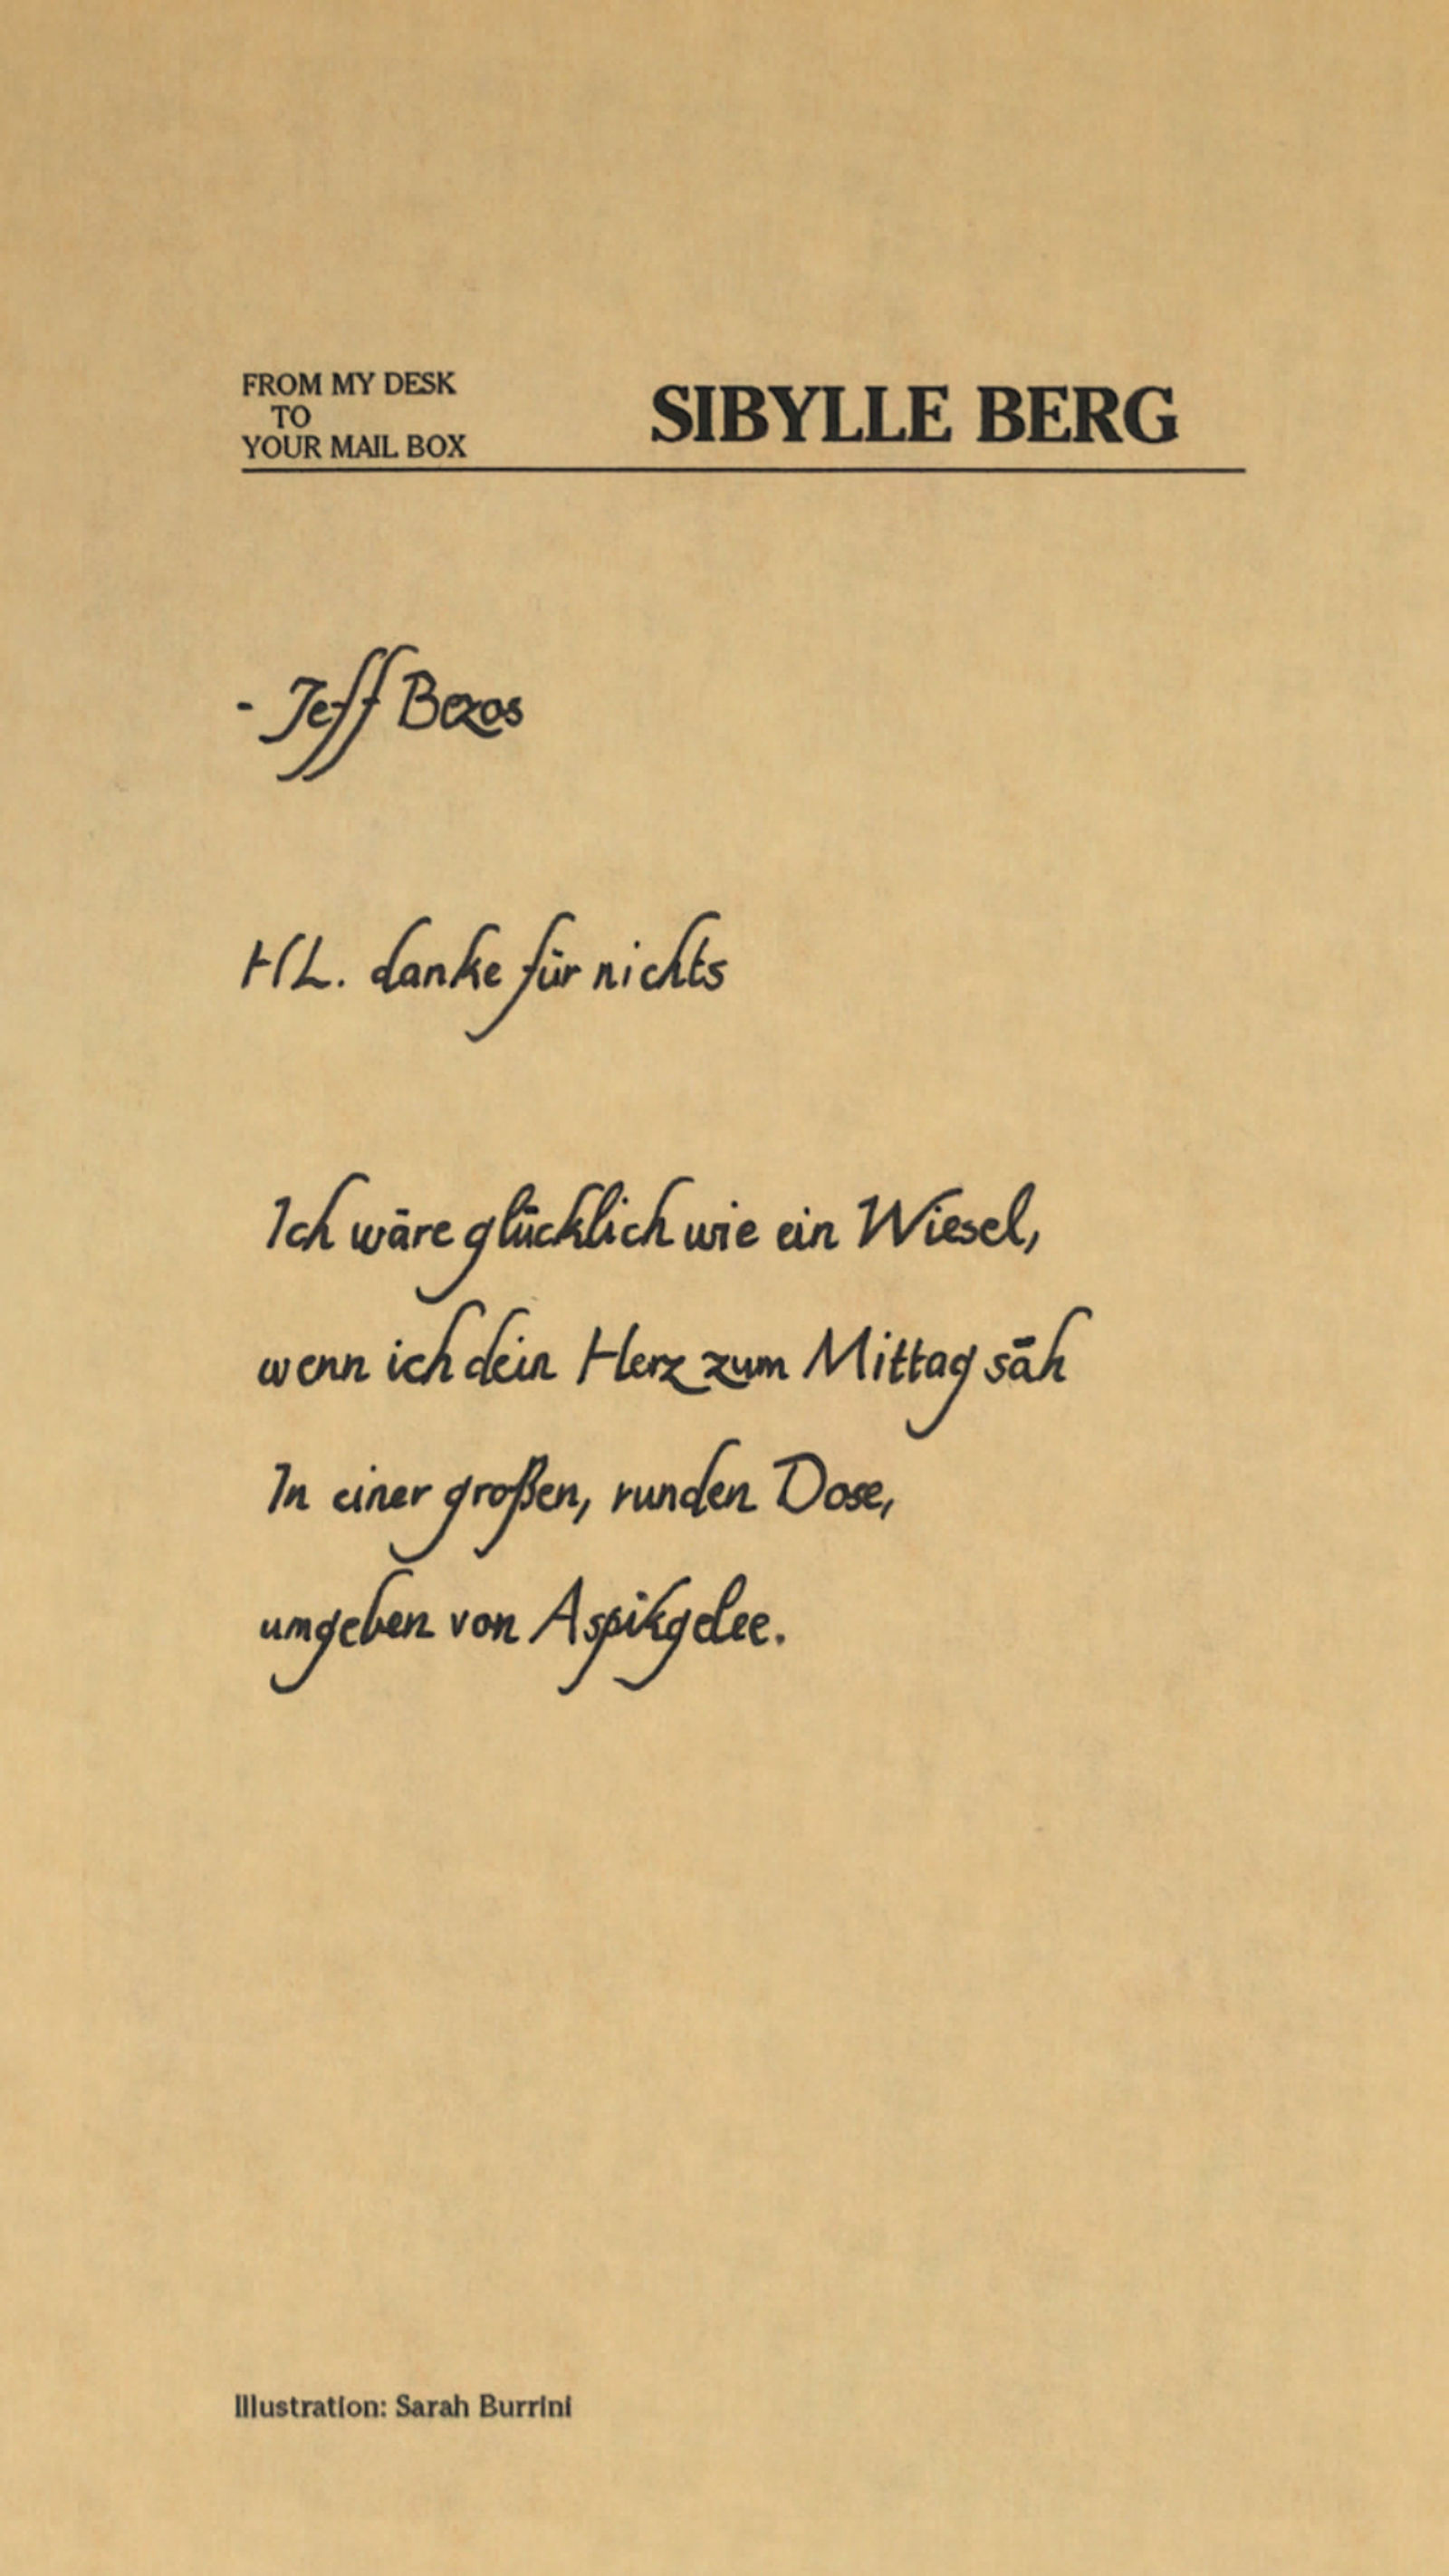 FROM MY DESK
TO
YOUR MAIL BOX
SIBYLLE BERG
- Jeff Bezos
HL. danke für nichts
Ich wäre glücklich wie ein Wiesel,
wenn ich dein Herz zum Mittag säh
In einer großen, runden Dose,
umgeben von Aspikgelee.
Illustration: Sarah Burrini